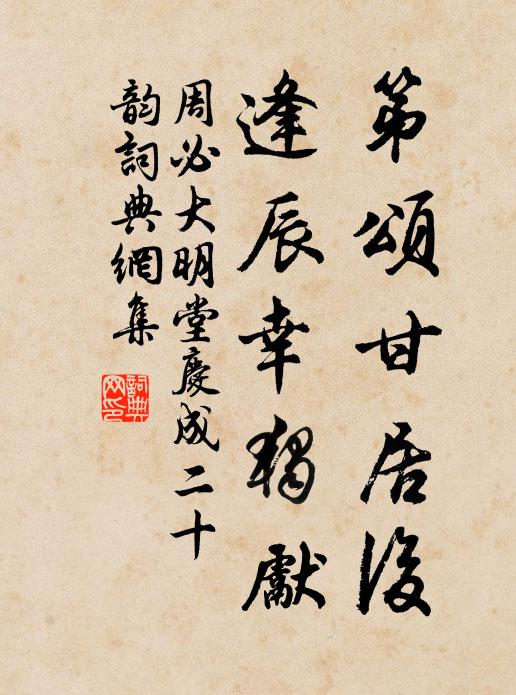 第頌甘居後
逢辰幸獨獻
周必大明堂慶成二十
韵詞典網集
詞典網印